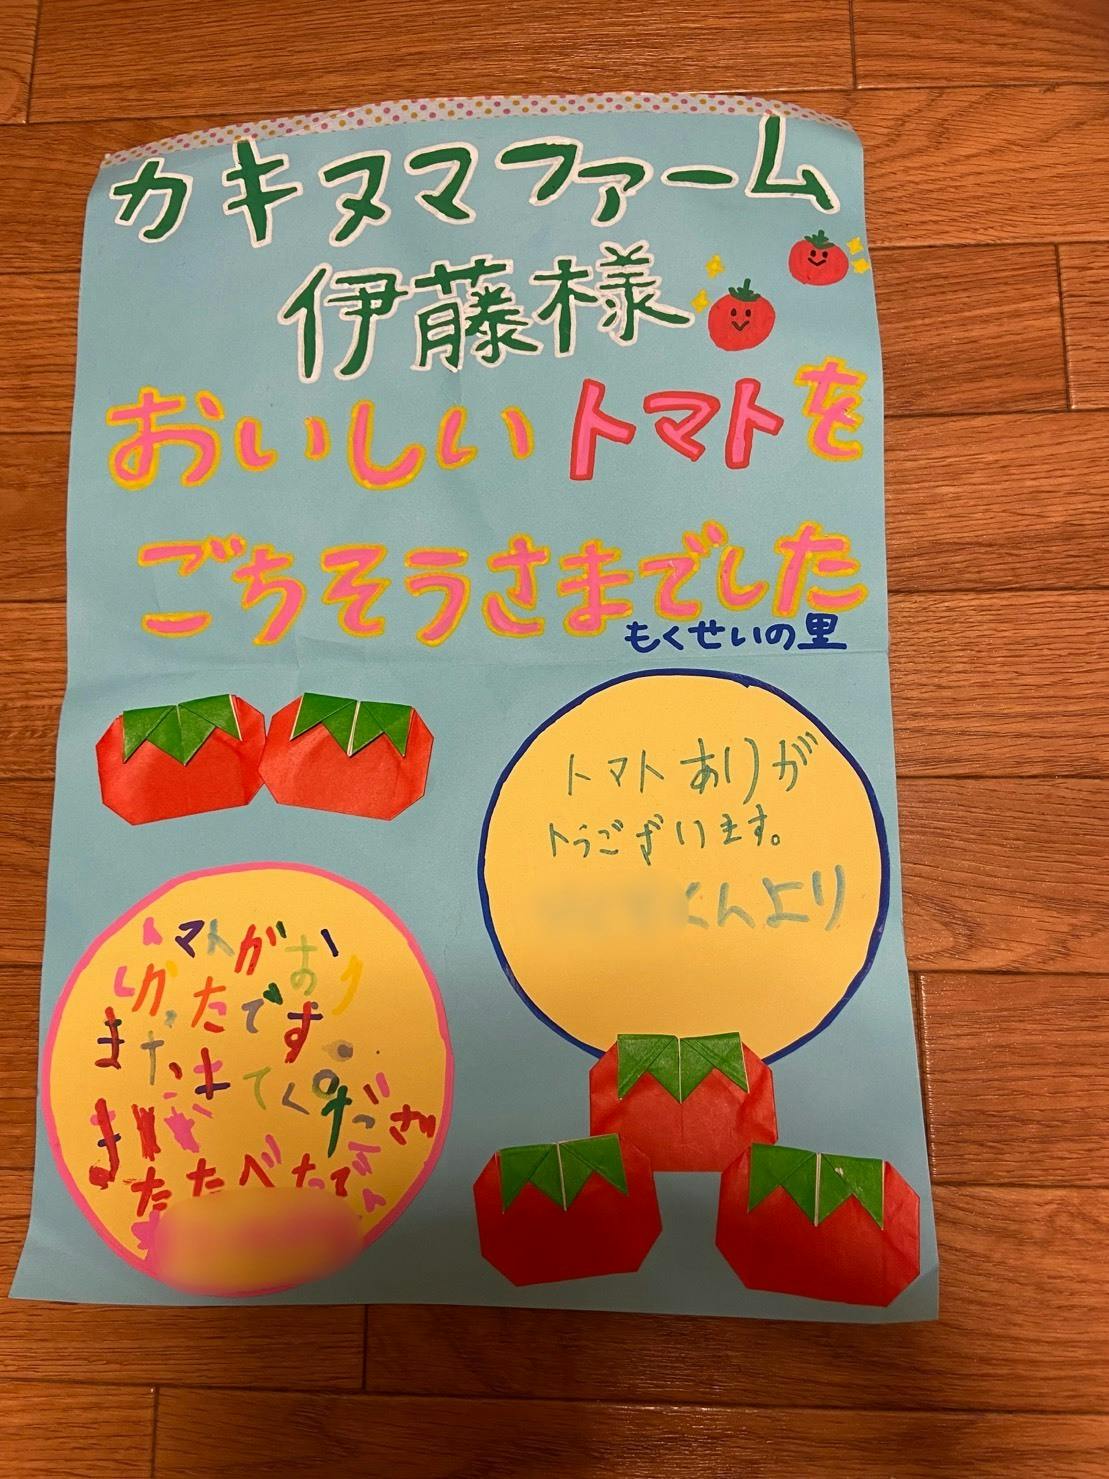 カキヌマファーム
伊藤様
おいしいトマトを
ごちそうさまでした
もくせいの里
トマトありが
トうございます。
くんより
トマトがおい
しかったです。
またきてくださ
またたべたいで